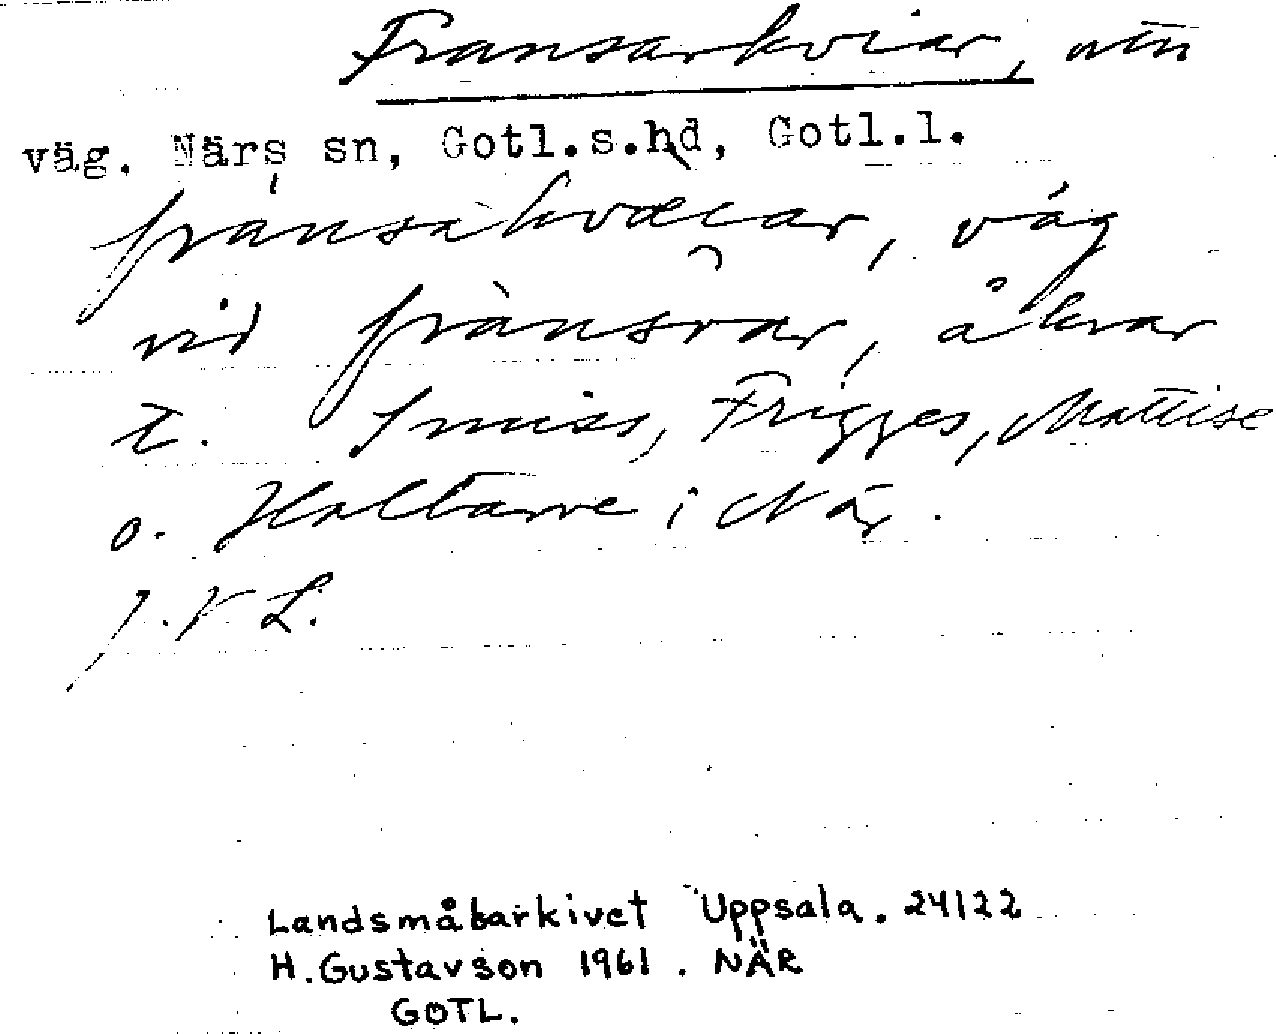 Fransarkviar, ntn
väg. Närs sn, Gotl.s.hd, Gotl.l.
fránsàkvæiar, väg
vid frànsrar, åkrar
t. Smiss, Frigges, Mattise
o. Hallarve i När.
J.V.L.
Landsmålsarkivet Uppsala. 24122
H. Gustavson 1961. NÄR
GOTL.